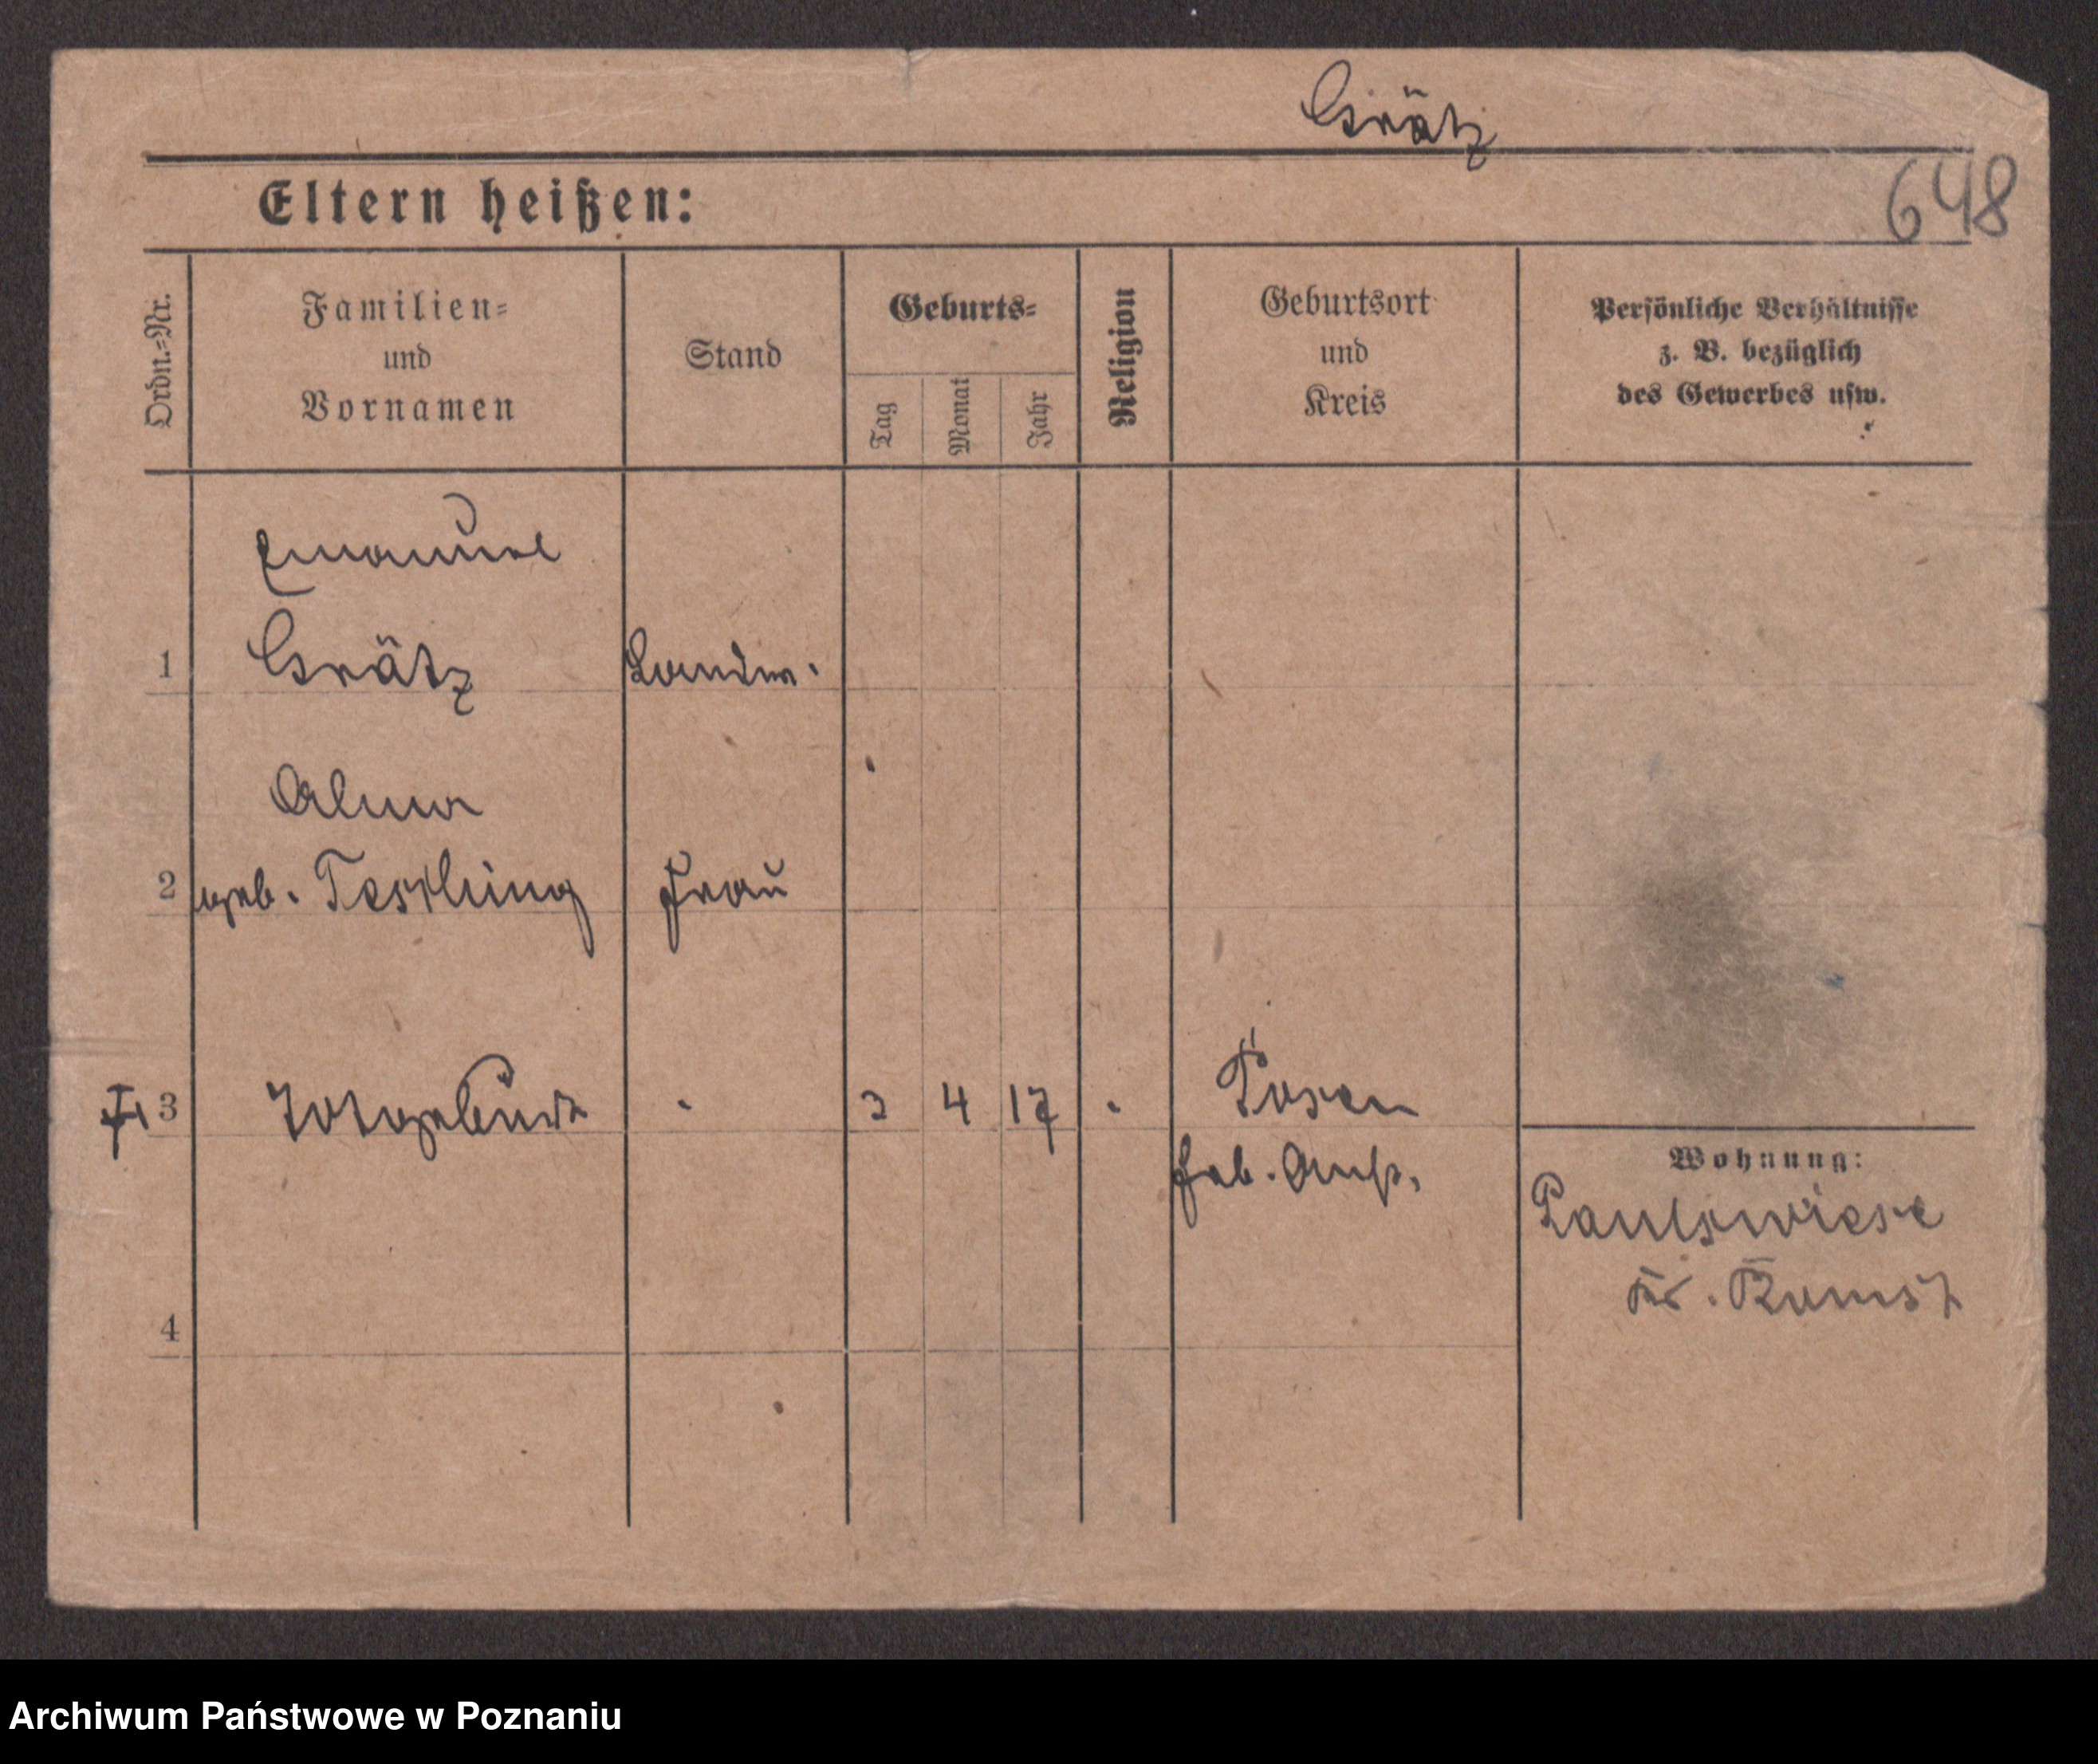 Grätz
Eltern heißen:
648
Ordn.-Nr.
Familien-
und
Vornamen
Stand
Geburts-
Tag
Monat
Jahr
Religion
Geburtsort
und
Kreis
Persönliche Verhältnisse
z. B. bezüglich
des Gewerbes usw.
Emanuel
1 Grätz Landw.
Alma
2 geb. Teschling Frau
3 Totgeburt 3 4 17 Posen
Geb. Anst.
Wohnung:
Paulswiese
Kr. Bomst
4
Archiwum Państwowe w Poznaniu